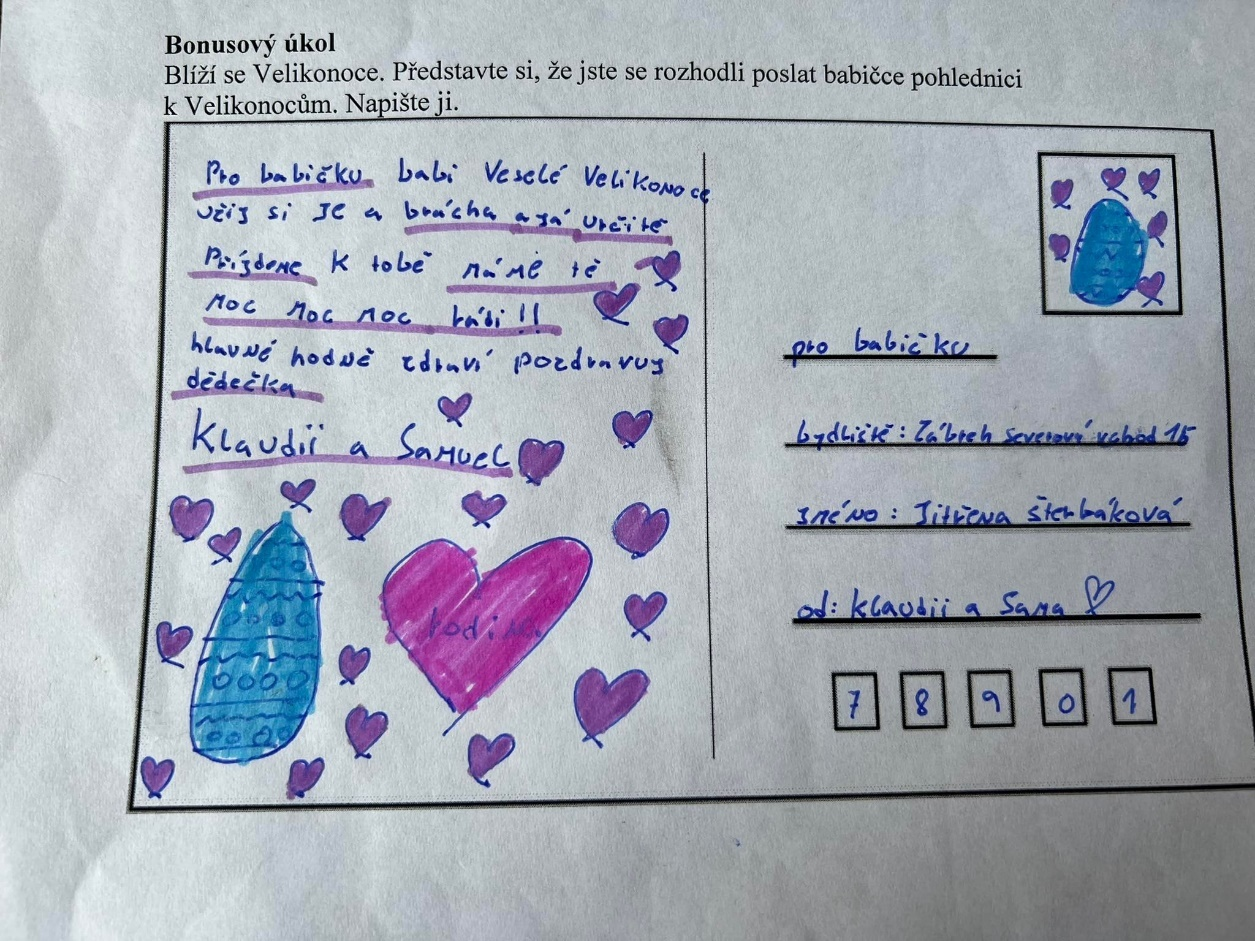 Bonusový úkol
Blíží se Velikonoce. Představte si, že jste se rozhodli poslat babičce pohlednici
k Velikonocům. Napište ji.
Pro babičku babi Veselé Velikonoce
užij si je a brácha a já určitě
Příjdeme k tobě máme tě
moc moc moc rádi!!
hlavně hodně zdraví pozdravuj
dědečka
Klaudii a Samuel
rodina
pro babičku
bydliště: Zábřeh vchod 15
jméno: Jitřena Štenbáková
od: Klaudii a Sama
7 8 9 0 1